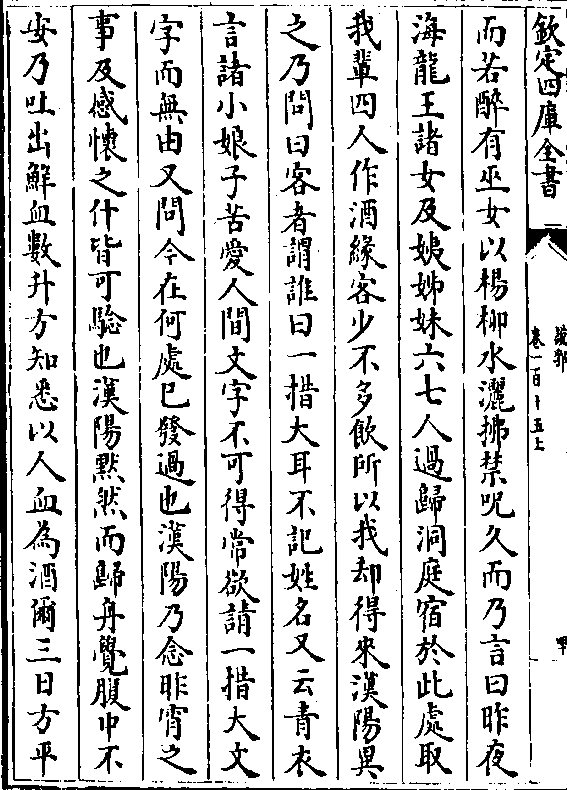 欽定四庫全書
說郛
卷一百十五上
而若醉有巫女以楊柳水灑拂禁呪久而乃言曰昨夜
海龍王諸女及姨姊妹六七人過歸洞庭宿於此處取
我輩四人作酒緣客少不多飲所以我却得來漢陽異
之乃問曰客者謂誰曰一措大耳不記姓名又云青衣
言諸小娘子苦愛人間文字不可得常欲請一措大文
字而無由又問今在何處已發過也漢陽乃念昨宵之
事及感懷之什皆可驗也漢陽黙然而歸舟覺腹中不
安乃吐出鮮血數升方知悉以人血為酒爾三日方平